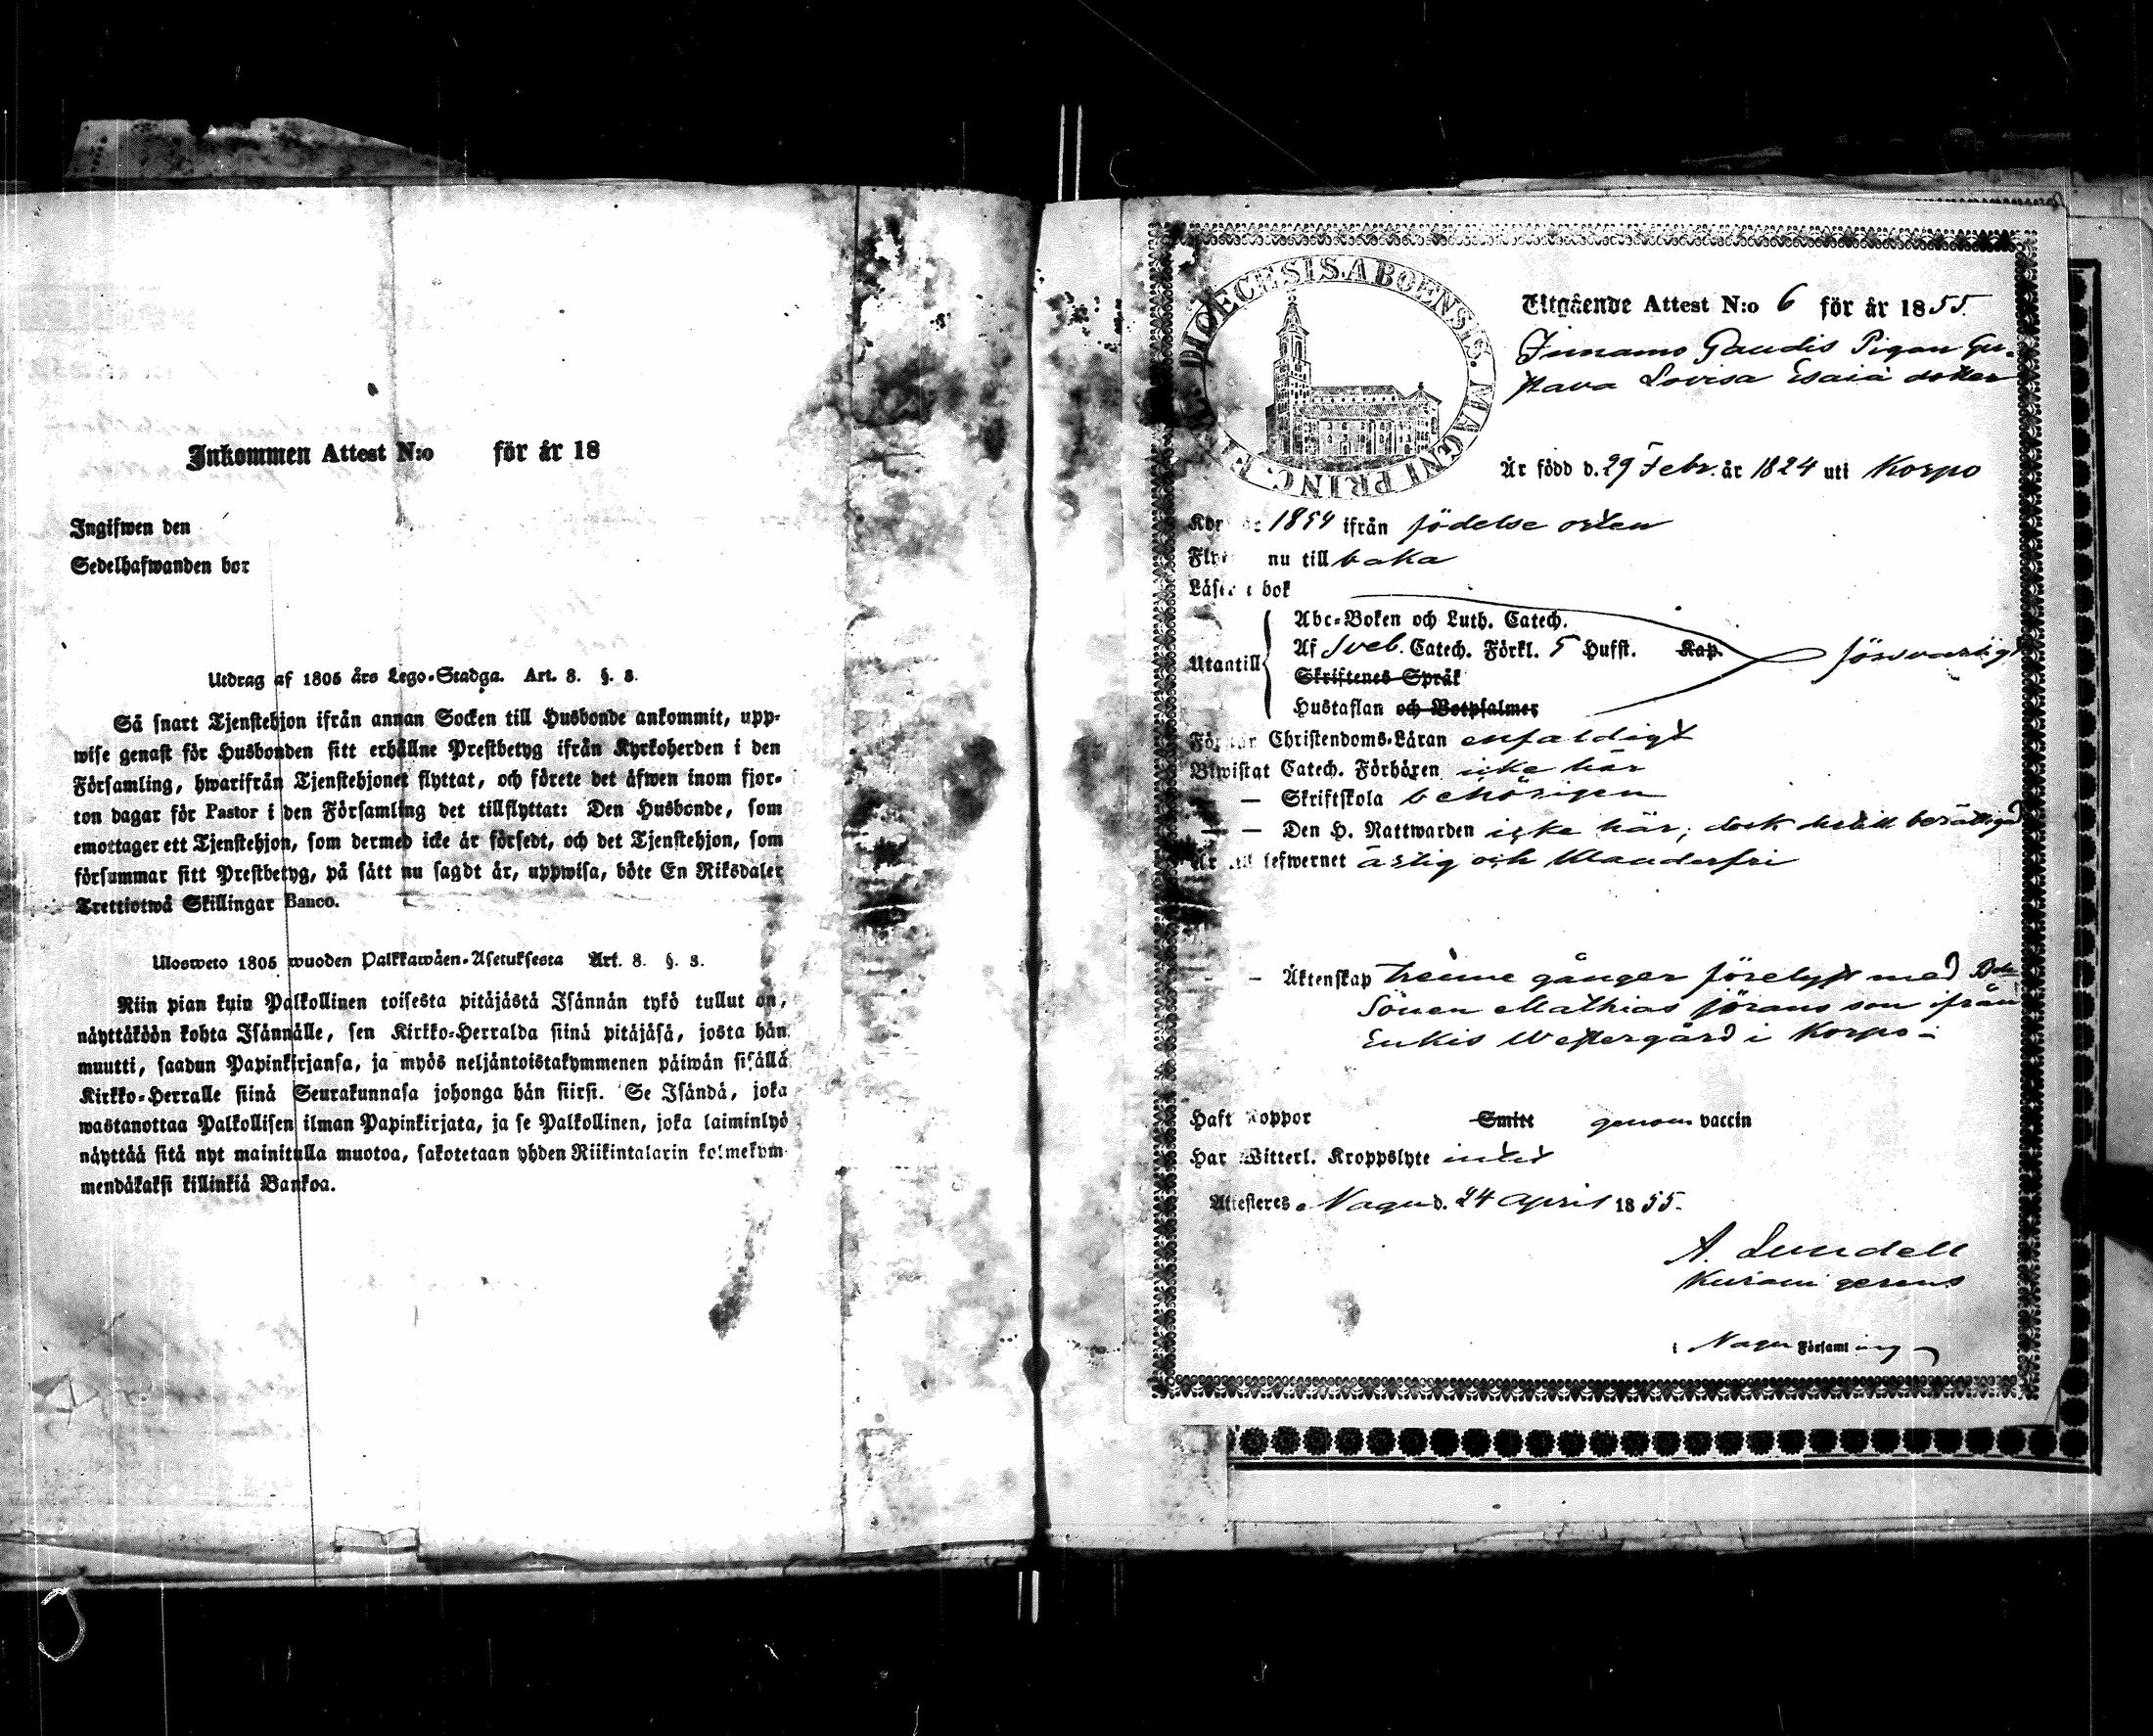 Inkommen Attest N:o för år 18
Ingifwen den
Sedelhafwanden bor
Utdrag af 1805 års Lego-Stadga. Art. 8. §. 8.
Så snart Tjenstehjon ifrån annan Socken till Husbonde ankommit, upp-
wise genast för Husbonden sitt erhållne Prestbetyg ifrån Kyrkoherden i den
Församling, hwarifrån Tjenstehjonet flyttat, och förete det äfwen inom fjor-
ton dagar för Pastor i den Församling det tillflyttat: Den Husbonde, som
emottager ett Tjenstehjon, som dermed icke är försedt, och det Tjenstehjon, som
försummar sitt Prestbetyg, på sätt nu sagdt är, uppwisa, böte En Riksdaler
Trettiotwå Skillingar Banco.
Ulosweto 1805 wuoden Palkkawäen-Asetuksesta Art. 8. §. 8.
Niin pian kuin Palkollinen toisesta pitäjästä Isännän tykö tullut on,
näyttäköön kohta Isännälle, sen Kirkko-Herralda siinä pitäjäsä, josta hän
muutti, saadun Papinkirjansa, ja myös neljäntoistakymmenen päiwän sisällä
Kirkko-Herralle siinä Seurakunnasa johonga hän siirsi. Se Isändä, joka
wastanottaa Palkollisen ilman Papinkirjata, ja se Palkollinen, joka laiminlyö
näyttää sitä nyt mainitulla muotoa, sakotetaan yhden Riikintalarin kolmekym-
mendäkaksi killinkiä Bankoa.
DIOECESIS. ABOENSIS. MAGNI PRINC.
Utgående Attest N:o 6 för år 1855.
Gaudis Pigan Gu-
stava Lovisa Esaiä dotter
Är född d. 29 Febr. år 1824 uti Korpo
1854 ifrån födelse orten
nu till baka
bok
Abc-Boken och Luth. Catech.
Af Sveb. Catech. Förkl. 5 Hufst. Kap. försvarligt
Utantill
Skriftenes Språk
Hustaflan och Botpsalmer
Förstår Christendoms-Läran enfaldigt
Biwistat Catech. Förhören icke här
— Skriftskola behörigen
— Den H. Nattwarden icke här, dock dertill berättigad
Är till lefwernet ärlig och klanderfri
— Äktenskap trenne gånger förelyst med
Sonen Mathias Jörans son ifrån
Enkis Westergård i Korpo.
Haft Koppor Smitt genom vaccin
Har Witterl. Kroppslyte intet
Attesteres Nagu d. 24 April 1855.
A. Lundell
Curam gerens
i Nagu Församling